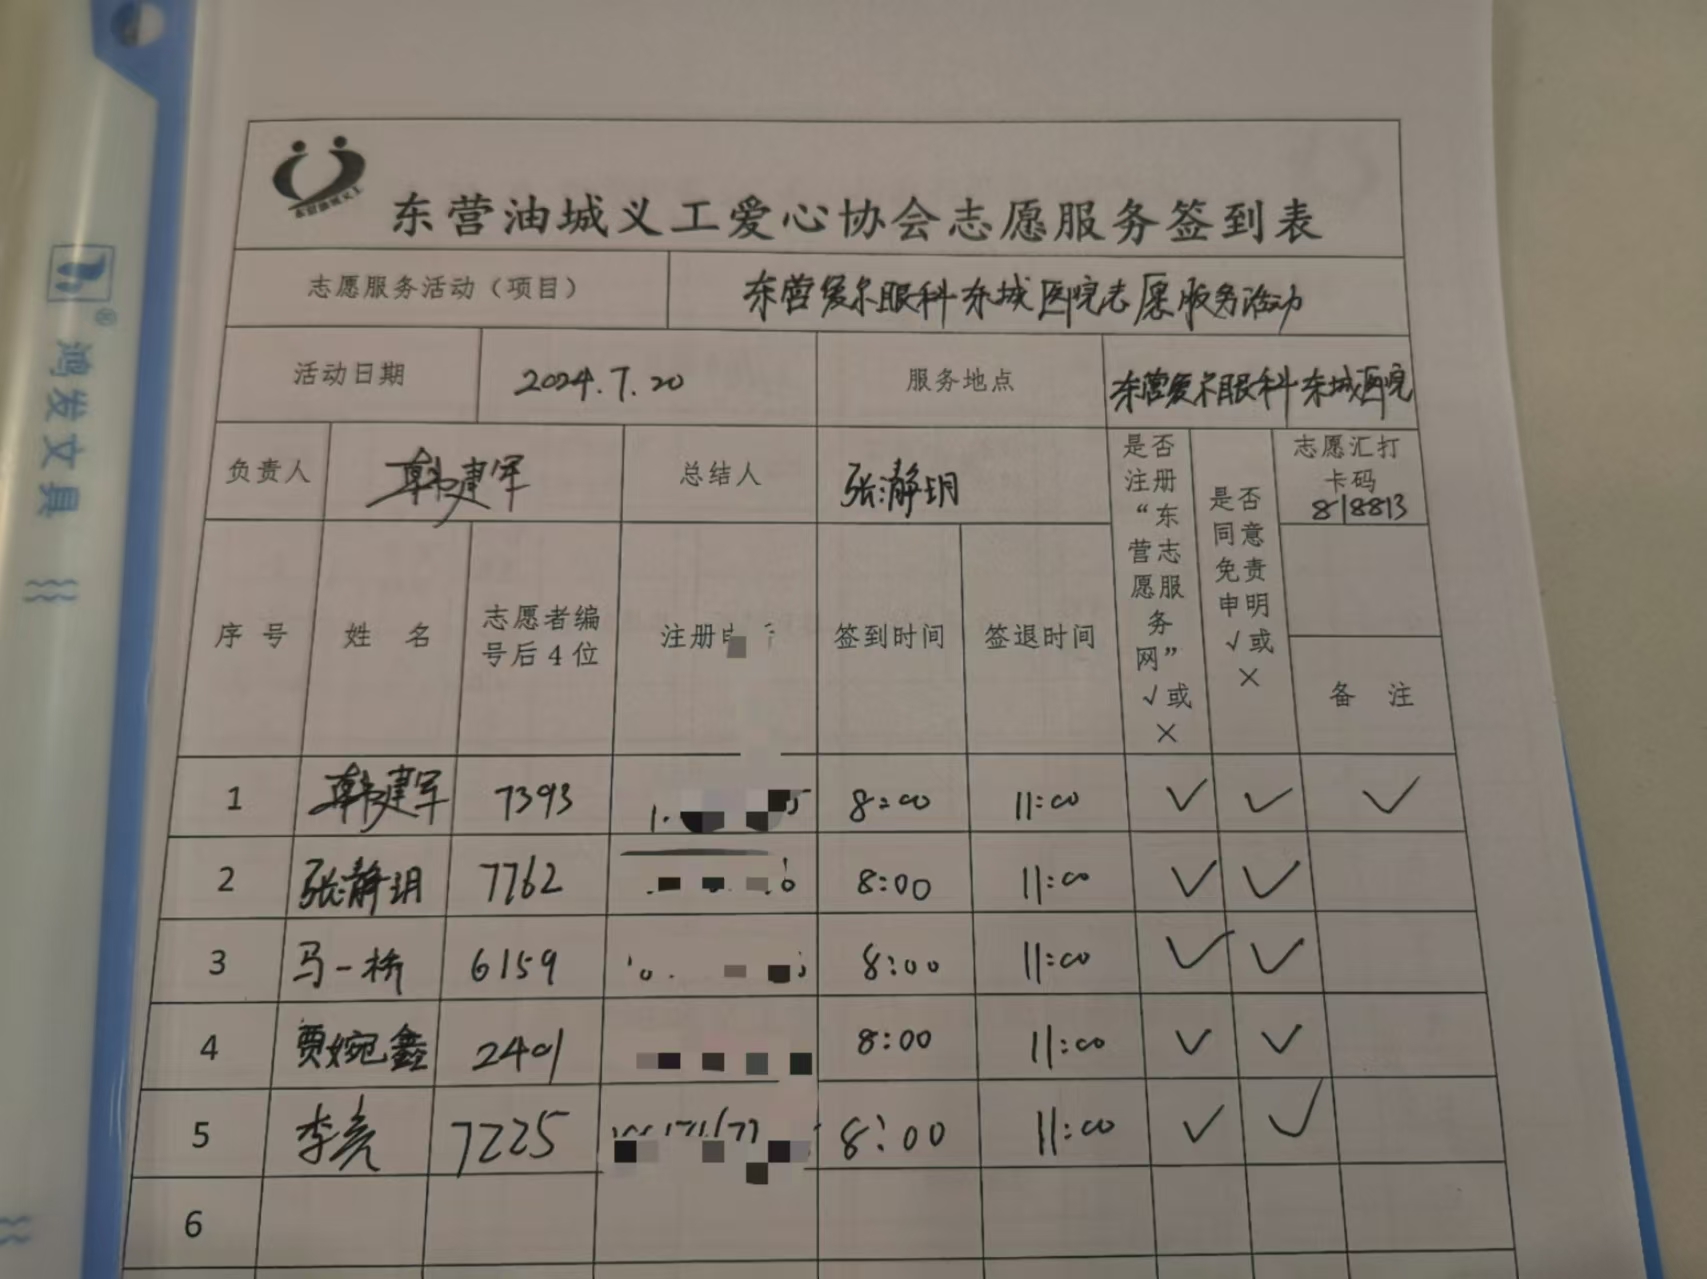 鸿发文具
®
东营油城义工
东营油城义工爱心协会志愿服务签到表
志愿服务活动（项目） 东营爱尔眼科东城医院志愿服务活动
活动日期 2024.7.20 服务地点 东营爱尔眼科东城医院
负责人 韩建军 总结人 张静玥
是否注册“东营志愿服务网”√或×
是否同意免责申明√或×
志愿汇打卡码
818813
序号 姓名 志愿者编号后4位 注册 签到时间 签退时间 备注
1 韩建军 7393 8:00 11:00 ✓ ✓ ✓
2 张静玥 7762 8:00 11:00 ✓ ✓
3 马一桥 6159 8:00 11:00 ✓ ✓
4 贾婉鑫 2401 8:00 11:00 ✓ ✓
5 李亮 7225 8:00 11:00 ✓ ✓
6